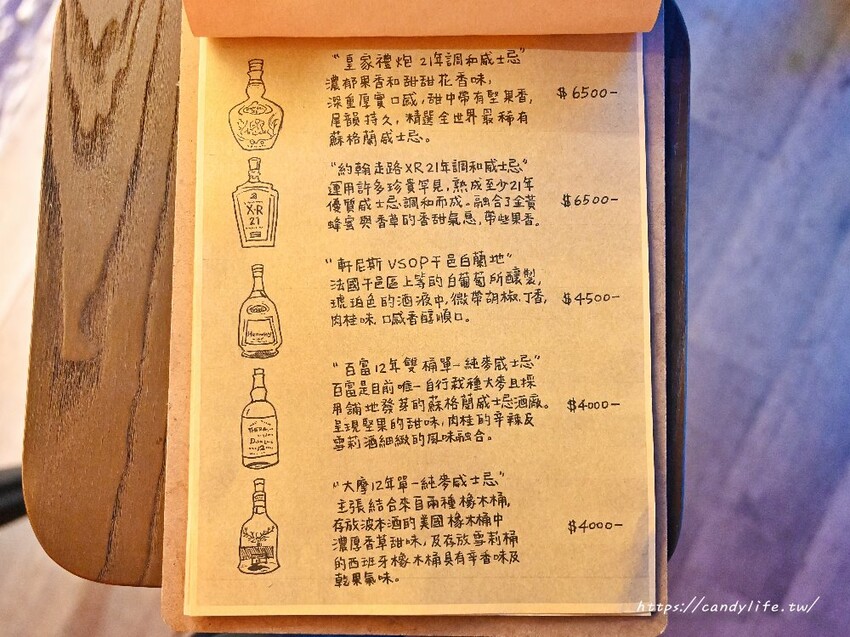 "皇家禮炮 21年調和威士忌"
濃郁果香和甜甜花香味,
深重厚實口感,甜中帶有堅果香,
尾韻持久,精選全世界最稀有
蘇格蘭威士忌。
$6500-
"約翰走路XR 21年調和威士忌"
運用許多珍貴罕見,熟成至少21年
優質威士忌調和而成。融合了金黃
蜂蜜與香草的香甜氣息,帶些果香。
$6500-
XR
21
"軒尼斯VSOP干邑白蘭地"
法國干邑區上等的白葡萄所釀製,
琥珀色的酒液中,微帶胡椒、丁香,
肉桂味,口感香醇順口。
$4500-
Hennessy
"百富12年雙桶單一純麥威士忌"
百富是目前唯一自行栽種大麥且採
用鋪地發芽的蘇格蘭威士忌酒廠。
呈現堅果的甜味,肉桂的辛辣及
雪莉酒細緻的風味融合。
$4000-
12
"大摩12年單一純麥威士忌"
主張結合來自兩種橡木桶,
存放波本酒的美國橡木桶中
濃厚香草甜味,及存放雪莉桶
的西班牙橡木桶具有辛香味及
乾果氣味。
$4000-
https://candylife.tw/